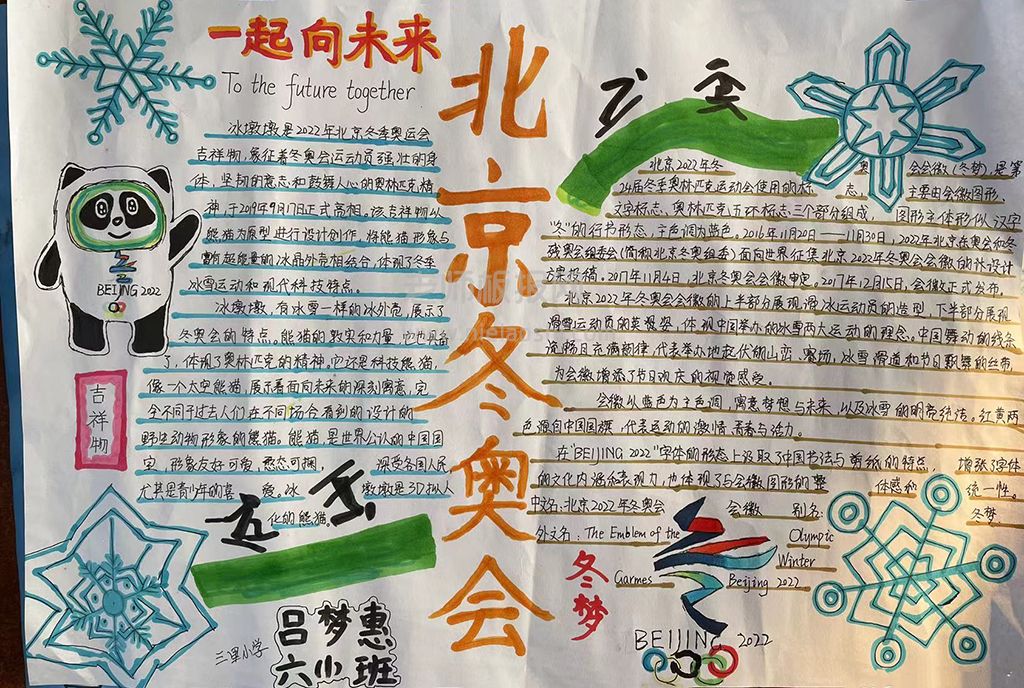 一起向未来
To the future together
冰墩墩是2022年北京冬季奥运会
吉祥物，象征着冬奥会运动员强壮的身
体，坚韧的意志和鼓舞人心的奥林匹克精
神，于2019年9月17日正式亮相。该吉祥物以
熊猫为原型进行设计创作，将熊猫形象与
富有超能量的冰晶外壳相结合，体现了冬季
冰雪运动和现代科技特点。
冰墩墩，有冰雪一样的冰外壳，展示了
冬奥会的特点。熊猫的敦实和力量，它也具备
了，体现了奥林匹克的精神，它还是科技熊猫，
像一个太空熊猫，展示着面向未来的深刻寓意，完
全不同于过去人们在不同场合看到的设计的
野生动物形象的熊猫。熊猫是世界公认的中国国
宝，形象友好可爱，憨态可掬，深受各国人民
尤其是青少年的喜爱。冰墩墩是3D拟人
化的熊猫。
BEIJING 2022
吉祥物
三里小学
吕梦惠
六(1)班
北京冬奥会
北京2022年冬奥会会徽(冬梦)是第
24届冬季奥林匹克运动会使用的标志，主要由会徽图形、
文字标志、奥林匹克五环标志三个部分组成，图形主体形似汉字
“冬”的行书形态，主色调为蓝色。2016年11月20日——11月30日，2022年北京冬奥会和冬
残奥会组委会(简称北京冬奥组委)面向世界征集北京2022年冬奥会会徽的设计
方案投稿。2017年11月4日，北京冬奥会会徽审定。2017年12月15日，会徽正式公布。
北京2022年冬奥会会徽的上半部分展现滑冰运动员的造型，下半部分展现
滑雪运动员的英姿，体现中国举办的冰雪两大运动的理念。中国舞动的线条
流畅且充满韵律，代表举办地起伏的山峦、赛场、冰雪滑道和节日飘舞的丝带，
为会徽增添了节日欢庆的视觉感受。
会徽以蓝色为主色调，寓意梦想与未来，以及冰雪的明亮纯洁。红黄两
色源自中国国旗，代表运动的激情、青春与活力。
在“BEIJING 2022”字体的形态上汲取了中国书法与剪纸的特点，增强字体
的文化内涵和表现力，也体现了与会徽图形的整体感和统一性。
中文名：北京2022年冬奥会会徽 别名：冬梦
外文名：The Emblem of the Olympic
Winter
Garmes Beijing 2022
冬梦
BEIJING 2022